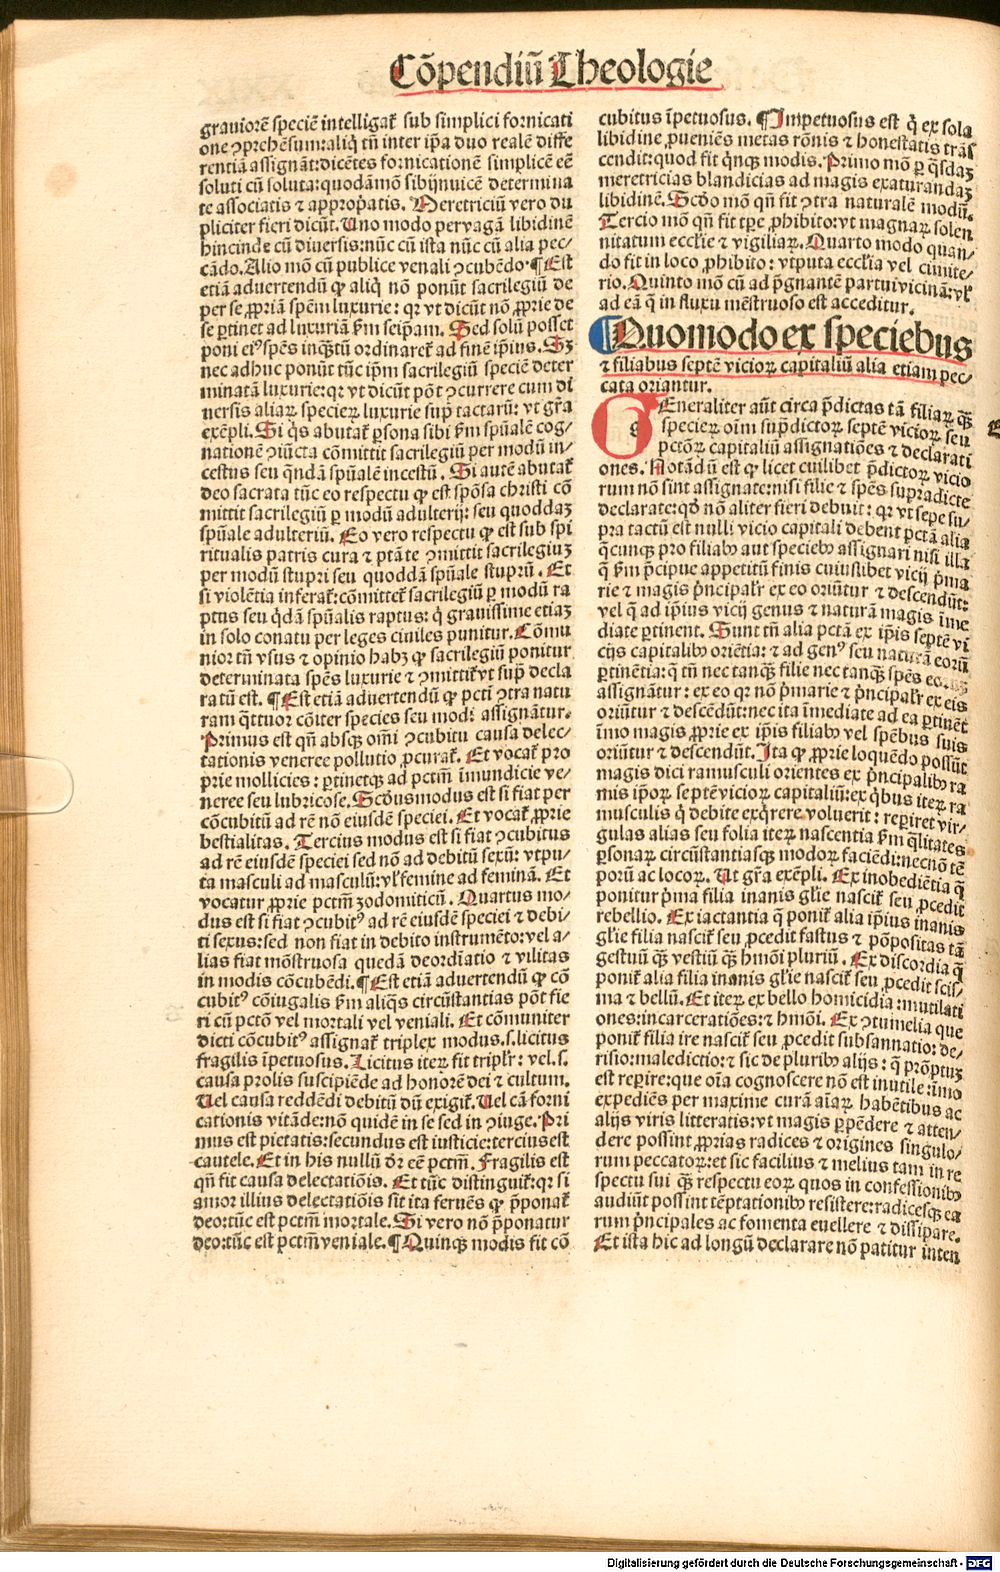 Cōpendiū Theologie
grauiorē speciē intelligat᷑ sub simplici fornicati
one ꝯprehēsum:aliq̄ tn̄ inter ip̄a duo realē diffe
rentiā assignāt:dicētes fornicationē simplicē eē
soluti cū soluta:quodāmō sibijnuicē determina
te associatis ⁊ appropatis. Meretriciū vero du
pliciter fieri dicūt. Uno modo pervagā libidinē
hincinde cū diuersis:nūc cū ista nūc cū alia pec/
cādo. Alio mō cū publice venali ꝯcubēdo. ¶ Est
etiā aduertendū ꝙ aliq̄ nō ponūt sacrilegiū de
per se ꝓpriā spēm luxurie: qr vt dicūt nō ꝓprie de
se ꝑtinet ad luxuriā ẜm seip̄am. Sed solū posset
poni eiꝰ spēs inq̄stū ordinaret᷑ ad finē ip̄ius. Sꝫ
nec adhuc ponūt tūc ip̄m sacrilegiū speciē deter
minatā luxurie: qr vt dicūt pōt ꝯcurrere cum di
uersis aliaꝝ specieꝝ luxurie sup̄ tactarū: vt gr̄a
exēpli. Si q̇s abutat᷑ ꝑsona sibi ẜm spūalē cog/
nationē ꝯiūcta cōmittit sacrilegiū per modū in/
cestus seu q̄ndā spūalē incestū. Si autē abutat᷑
deo sacrata tūc eo respectu ꝙ est spōsa christi cō
mittit sacrilegiū ꝑ modū adulterij: seu quoddaꝫ
spūale adulteriū. Eo vero respectu ꝙ est sub spi
ritualis patris cura ⁊ ptāte ꝯmittit sacrilegiuꝫ
per modū stupri seu quoddā spūale stuprū. Et
si violētia inferat᷑: cōmittet᷑ sacrilegiū ꝑ modū ra
ptus seu q̇dā spūalis raptus: q̇ grauissime etiaꝫ
in solo conatu per leges ciuiles punitur. Cōmu
nior tn̄ vsus ⁊ opinio habꝫ ꝙ sacrilegiū ponitur
determinata spēs luxurie ⁊ ꝯmittit᷑ vt sup̄ decla
ratū est. ¶ Est etiā aduertendū ꝙ pctī ꝯtra natu
ram q̄ttuor cōiter species seu modi assignātur.
Primus est qn̄ absq̄ om̄i ꝯcubitu causa delec/
tationis veneree pollutio ꝓcurat᷑. Et vocat᷑ pro
prie mollicies: ꝑtinetq̄ ad pctm̄ īmundicie ve/
neree seu lubricose. Scd̄us modus est si fiat per
cōcubitū ad rē nō eiusdē speciei. Et vocat᷑ ꝓprie
bestialitas. Tercius modus est si fiat ꝯcubitus
ad rē eiusdē speciei sed nō ad debitū sexū: vtpu/
ta masculi ad masculū: vl̓ femine ad feminā. Et
vocatur ꝓprie pctm̄ ꝫodomiticū. Quartus mo/
dus est si fiat ꝯcubitꝰ ad rē eiusdē speciei ⁊ debi/
ti sexus: sed non fiat in debito instrumēto: vel a/
lias fiat mōstruosa quedā deordiatio ⁊ vilitas
in modis cōcubēdi. ¶ Est etiā aduertendū ꝙ cō
cubitꝰ cōiugalis ẜm aliq̄s circūstantias pōt fie
ri cū pctō vel mortali vel veniali. Et cōmuniter
dicti cōcubitꝰ assignat᷑ triplex modus.s.licitus
fragilis īpetuosus. Licitus iteꝝ fit tripl̓r: vel.s.
causa prolis suscipiēde ad honorē dei ⁊ cultum.
Uel causa reddēdi debitū dū exigit᷑. Uel cā forni
cationis vitāde: nō quidē in se sed in ꝯiuge. Pri
mus est pietatis: secundus est iusticie: tercius est
cautele. Et in his nullū dr̄ eē pctm̄. Fragilis est
qn̄ fit causa delectatiōis. Et tūc distinguit᷑: qr si
amor illius delectatiōis sit ita feruēs ꝙ p̄ponat᷑
deo: tūc est pctm̄ mortale. Si vero nō p̄ponatur
deo: tūc est pctm̄ veniale. ¶ Quinq̄ modis fit cō
cubitus īpetuosus. ¶ Impetuosus est q̇ ex sola
libidine ꝓueniēs metas rōnis ⁊ honestatis trās
cendit: quod fit q̇nq̄ modis. Primo mō ꝑ q̄sdaꝫ
meretricias blandicias ad magis exaturandaꝫ
libidinē. Scd̄o mō qn̄ fit ꝯtra naturalē modū.
Tercio mō qn̄ fit tp̄e ꝓhibito: vt magnaꝝ solen
nitatum eccl̓ie ⁊ vigiliaꝝ. Quarto modo quan/
do fit in loco ꝓhibito: vtputa eccl̓ia vel cimite/
rio. Quinto mō cū ad p̄gnantē partui vicinā: vl̓
ad eā q̄ in fluxu mēstruoso est acceditur.
¶ Quomodo ex speciebus
⁊ filiabus septē vicioꝝ capitaliū alia etiam pec/
cata oriantur.
GEneraliter aūt circa p̄dictas tā filiaꝝ q̄ꝫ
specieꝝ oīm sup̄dictoꝝ septē vicioꝝ seu
pctōꝝ capitaliū assignatiōes ⁊ declarati
ones. Notādū est ꝙ licet cuilibet p̄dictoꝝ vicio
rum nō sint assignate: nisi filie ⁊ spēs supradicte
declarate: qd̄ nō aliter fieri debuit: qr vt sepe su/
pra tactū est nulli vicio capitali debent pctā alia
q̄cunq̄ pro filiabꝰ aut speciebꝰ assignari nisi illa
q̄ ẜm p̄cipue appetitū finis cuiuslibet vicij p̄ma
rie ⁊ magis p̄ncipal̓r ex eo oriūtur ⁊ descendūt:
vel q̄ ad ip̄ius vicij genus ⁊ naturā magis īme
diate ꝑtinent. Sunt tn̄ alia pctā ex ip̄is septē vi
cijs capitalibꝰ oriētia: ⁊ ad genꝰ seu naturā eorū
ꝑtinētia: q̄ tn̄ nec tanq̄ꝫ filie nec tanq̄ꝫ spēs
assignātur: ex eo qr nō p̄marie ⁊ p̄ncipal̓r ex eis
oriūtur ⁊ descēdūt: nec ita īmediate ad ea ꝑtinēt
īmo magis ꝓprie ex ip̄is filiabꝰ vel spēbus suis
oriūtur ⁊ descendūt. Ita ꝙ ꝓprie loquēdo possūt
magis dici ramusculi orientes ex p̄ncipalibꝰ ra
mis ip̄oꝝ septē vicioꝝ capitaliū: ex q̇bus iteꝝ ra
musculis q̇ debite exq̇rere voluerit: reꝑiret vir/
gulas alias seu folia iteꝝ nascentia ẜm q̄litates
ꝑsonaꝝ circūstantiasq̄ modoꝝ faciēdi: necnō tē
porū ac locoꝝ. Ut gr̄a exēpli. Ex inobediētia q̄
ponitur p̄ma filia inanis gl̓ie nascit᷑ seu ꝓcedit
rebellio. Ex iactantia q̄ ponit᷑ alia ip̄ius inanis
gl̓ie filia nascit᷑ seu ꝓcedit fastus ⁊ pōpositas tā
gestuū q̄ꝫ vestiū q̄ꝫ hmōi pluriū. Ex discordia q̄
ponit᷑ alia filia inanis gl̓ie nascit᷑ seu ꝓcedit scis/
ma ⁊ bellū. Et iteꝝ ex bello homicidia: mutilati
ones: incarceratiōes: ⁊ hmōi. Ex ꝯtumelia que
ponit᷑ filia ire nascit᷑ seu ꝓcedit subsannatio: de/
risio: maledictio: ⁊ sic de pluribꝰ alijs: q̄ prōptuꝫ
est reꝑire: que oīa cognoscere nō est inutile: īmo
expediēs per maxime curā aīaꝝ habētibus ac
alijs viris litteratis: vt magis ꝑpēdere ⁊ atten/
dere possint ꝓprias radices ⁊ origines singulo/
rum peccatoꝝ: et sic facilius ⁊ melius tam in re
spectu sui q̄ꝫ respectu eoꝝ quos in confessionibꝰ
audiūt possint tēptationibꝰ resistere: radicesq̄ ea
rum p̄ncipales ac fomenta euellere ⁊ dissipare.
Et ista hic ad longū declarare nō patitur inten
Digitalisierung gefördert durch die Deutsche Forschungsgemeinschaft - DFG